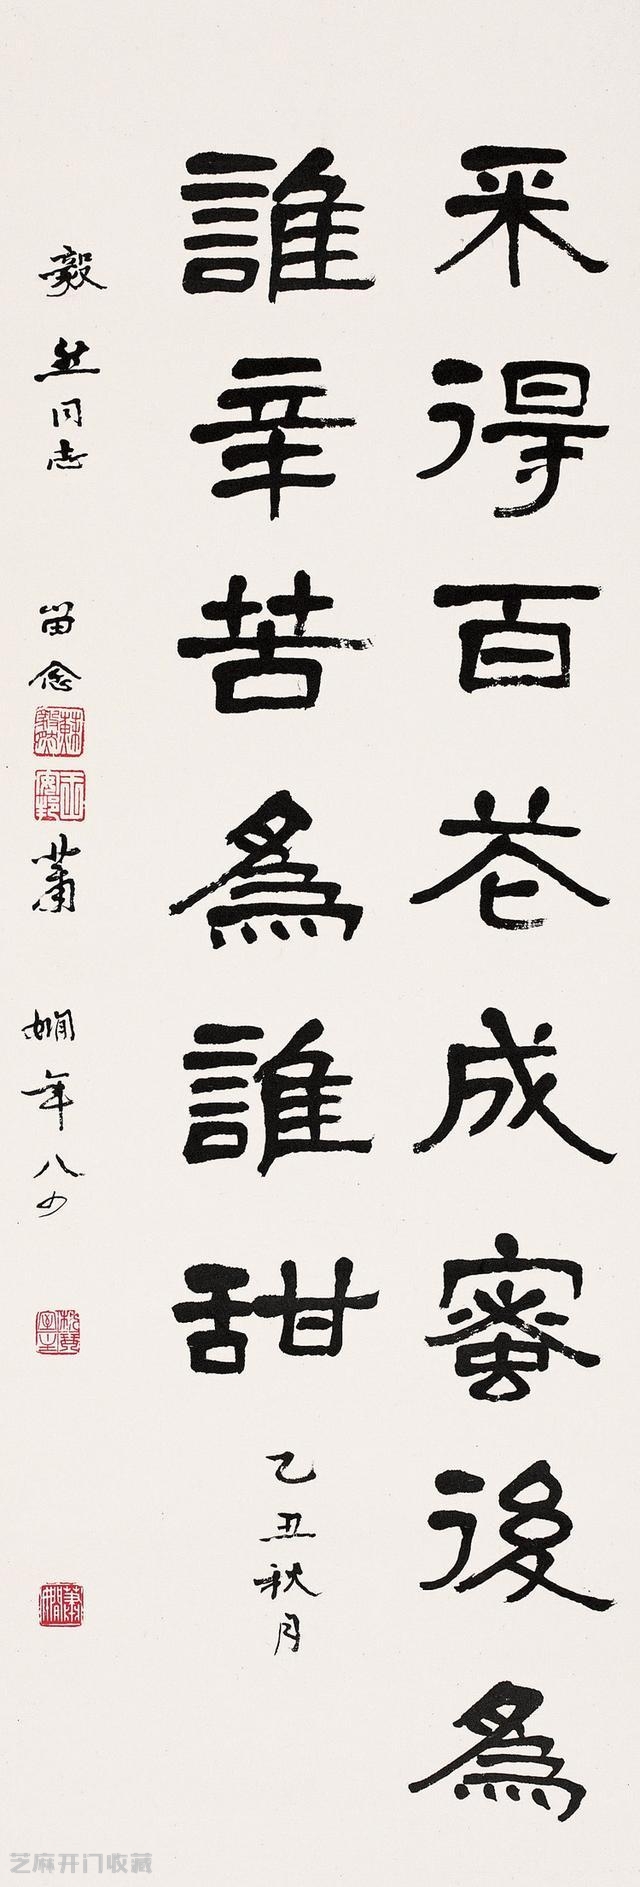 采得百花成蜜後爲
誰辛苦爲誰甜
乙丑秋月
毅然同志 留念
蕭嫻年八
芝麻开门收藏